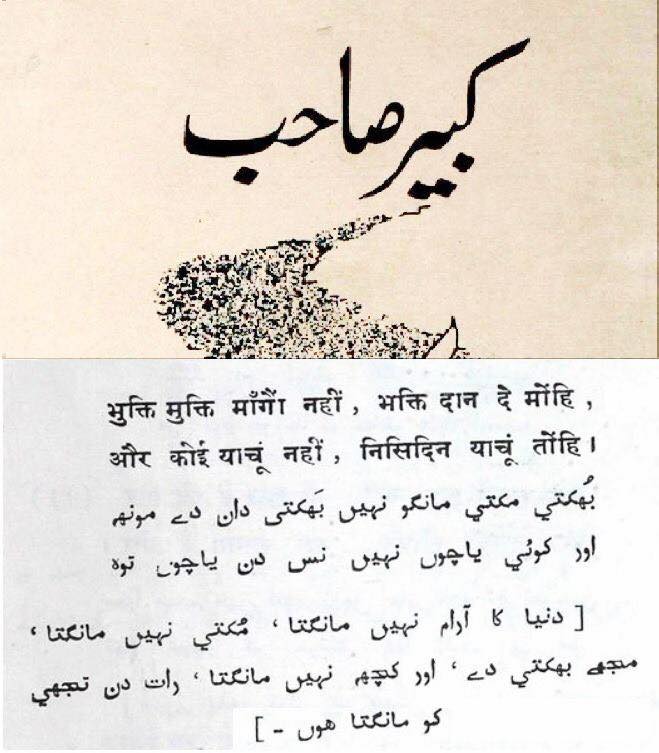 کبیر صاحب
भुक्ति मुक्ति माँगौं नहीं, भक्ति दान दे मोंहि,
और कोई याचूं नहीं, निसिदिन याचूं तोंहि।
بُھکتي مکتي مانگو نہیں بَھکتی دان دے مونہہ
اور کوئي یاچوں نہیں نس دن یاچوں توہ
[ دنیا کا آرام نہیں مانگتا، مُکتي نہیں مانگتا،
مجھے بھکتي دے، اور کچھہ نہیں مانگتا، رات دن تجھي
کو مانگتا ھوں - ]